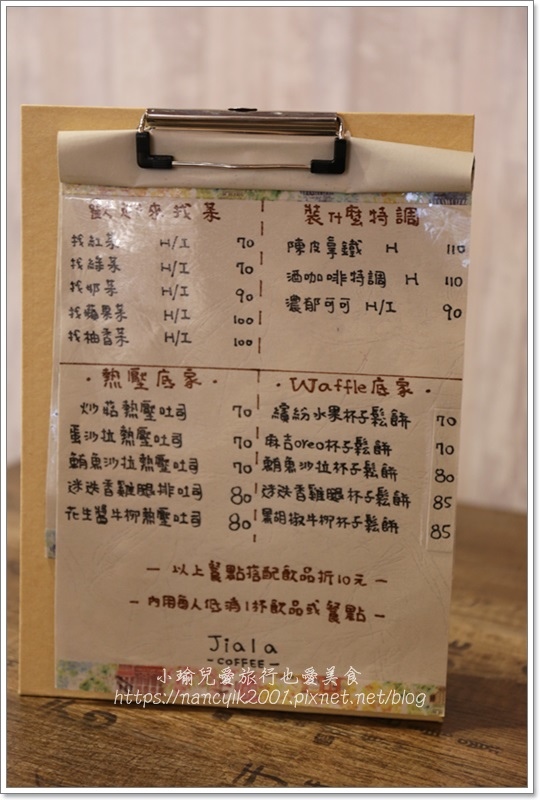 歡迎來找茶
找紅茶 H/I 70
找綠茶 H/I 70
找奶茶 H/I 90
找蘋果茶 H/I 100
找柚香茶 H/I 100
裝什麼特調
陳皮拿鐵 H 110
酒咖啡特調 H 110
濃郁可可 H/I 90
·熱壓底家·
炒菇熱壓吐司 70
蛋沙拉熱壓吐司 70
鮪魚沙拉熱壓吐司 70
迷迭香雞腿排吐司 80
花生醬牛柳熱壓吐司 80
Waffle底家·
繽紛水果杯子鬆餅 70
麻吉oreo杯子鬆餅 70
鮪魚沙拉杯子鬆餅 80
迷迭香雞腿杯子鬆餅 85
黑胡椒牛柳杯子鬆餅 85
— 以上餐點搭配飲品折10元 —
— 內用每人低消1杯飲品或餐點 —
Jiala
- COFFEE -
小瑜兒愛旅行也愛美食
https://nancylk2001.pixnet.net/blog